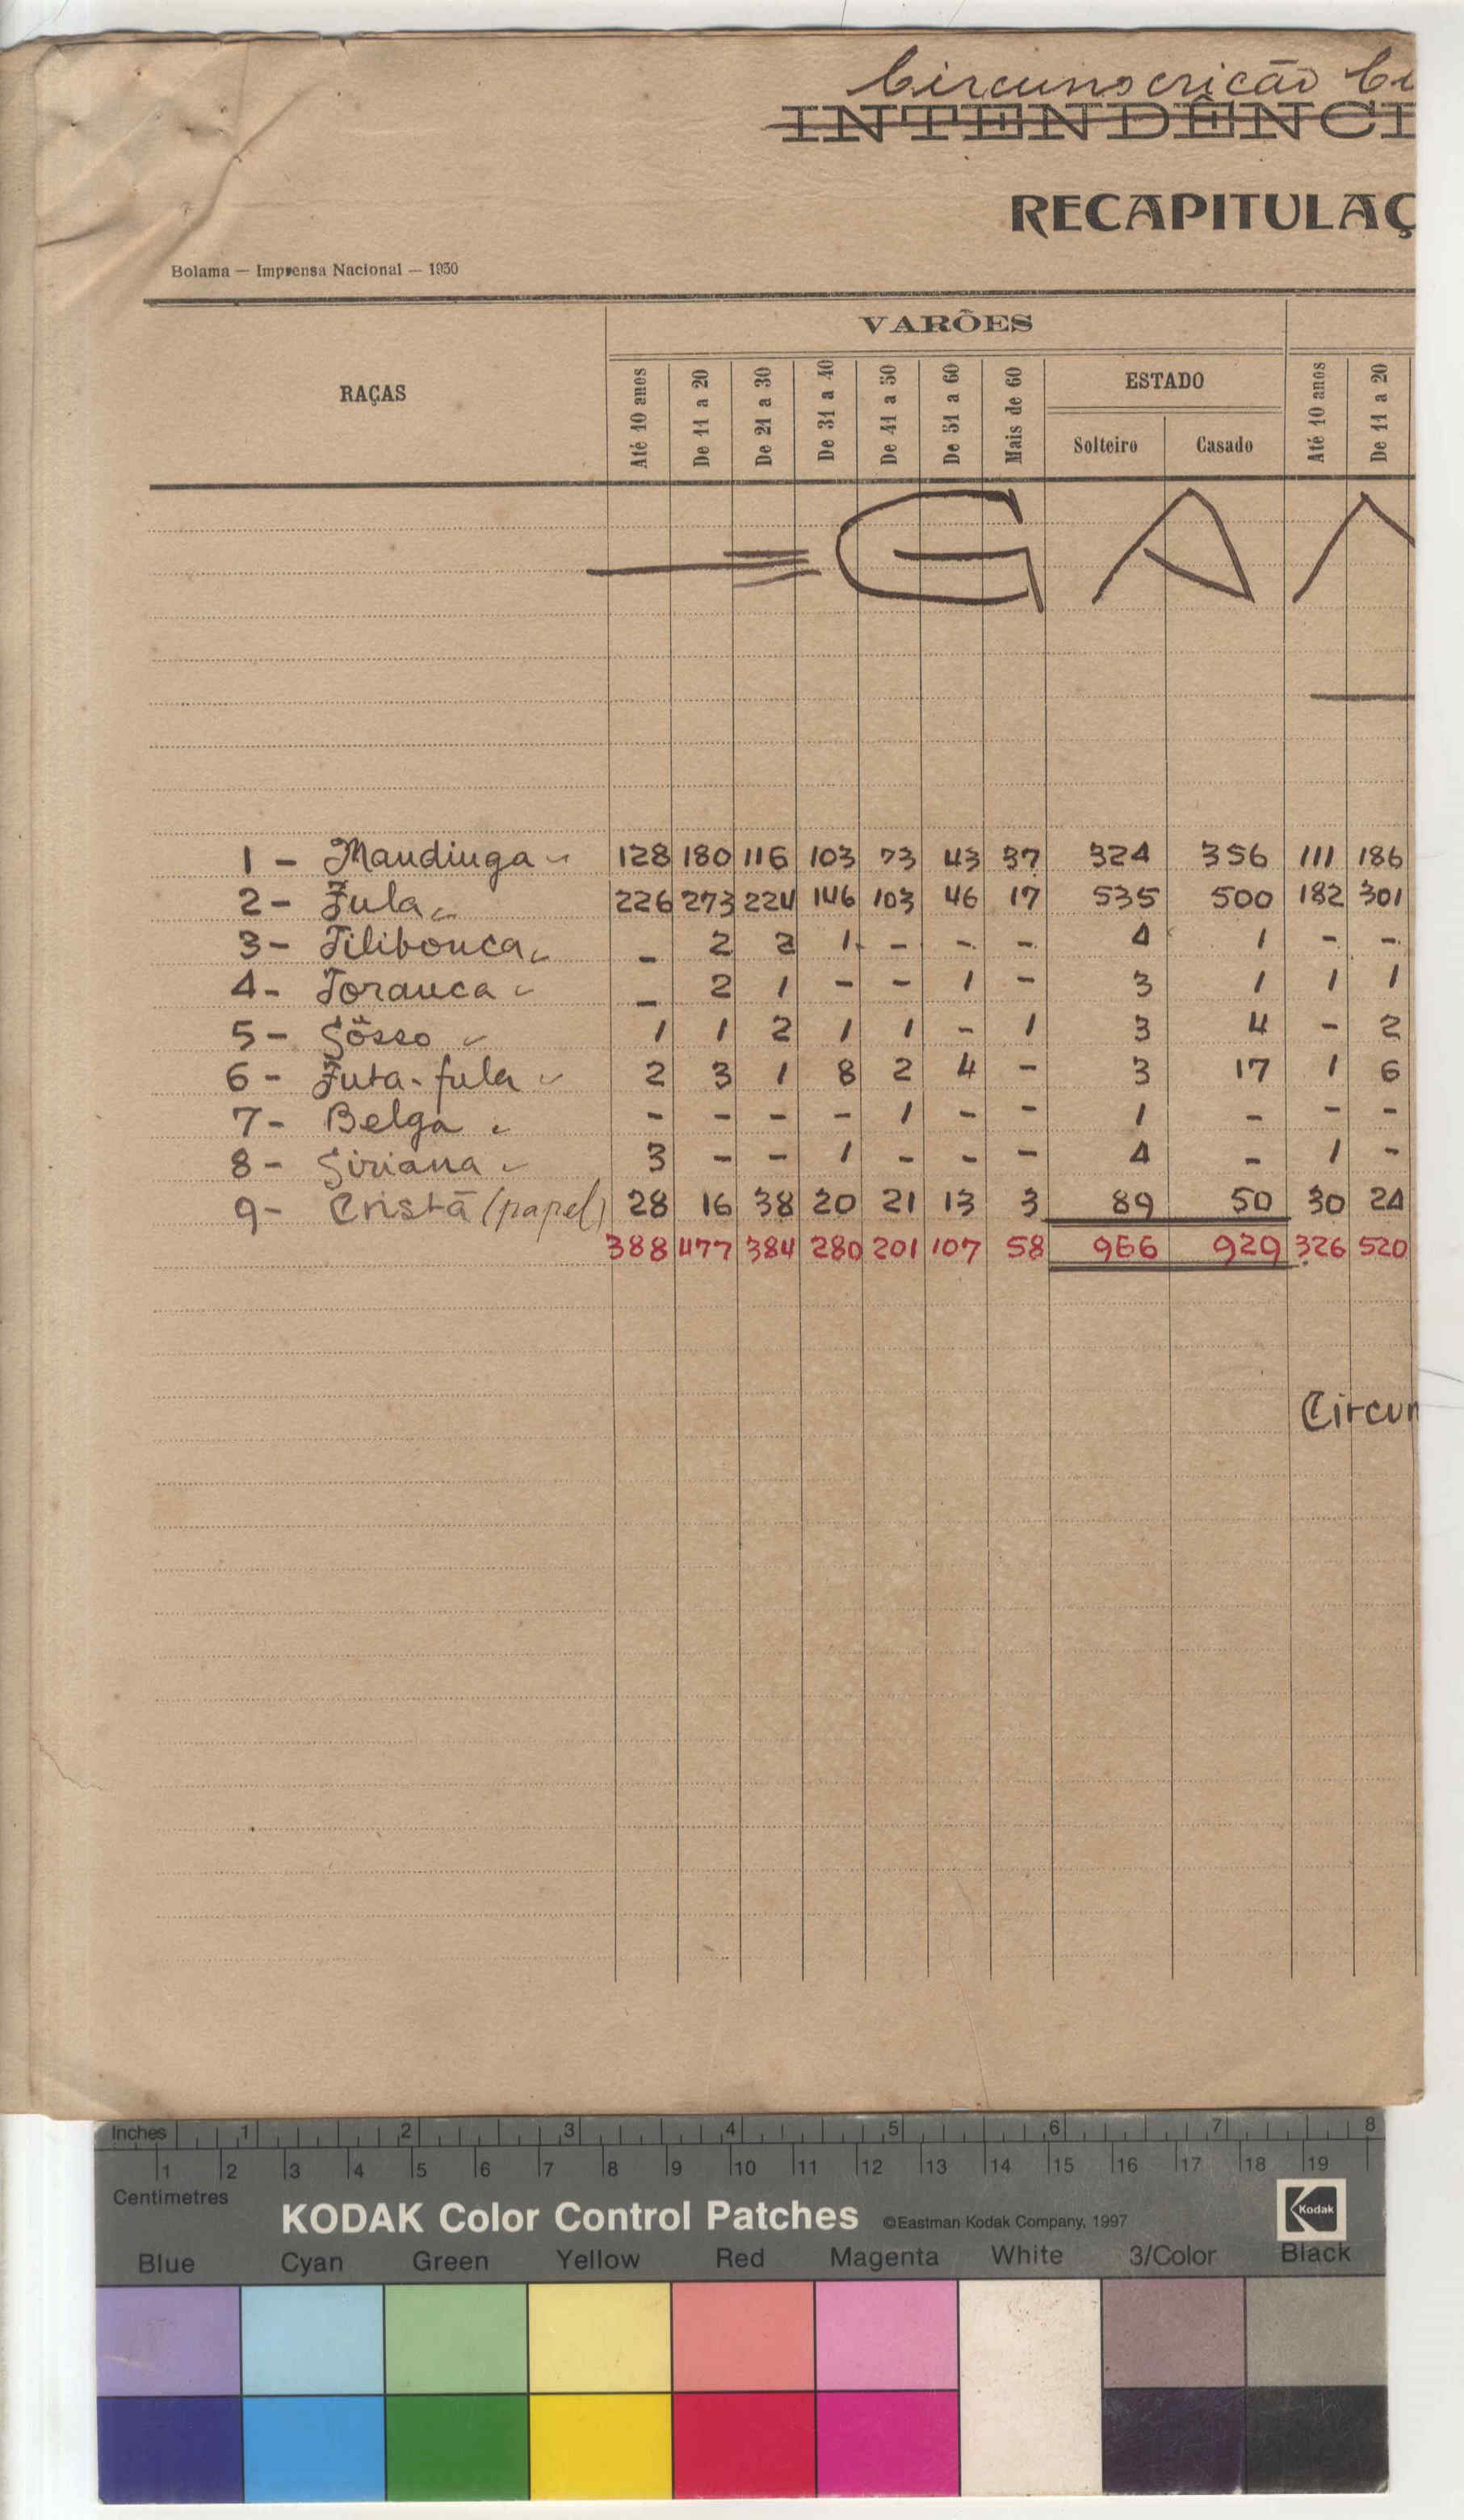 Circunscricão Ci
INTENDÊNCI
RECAPITULAÇ
Bolama — Imprensa Nacional — 1930
VARÕES
RAÇAS
Até 10 anos
De 11 a 20
De 21 a 30
De 31 a 40
De 41 a 50
De 51 a 60
Mais de 60
ESTADO
Solteiro Casado
Até 10 anos
De 11 a 20
= G A
1 - Mandinga 128 180 116 103 73 43 37 324 356 111 186
2 - Fula 226 273 224 146 103 46 17 535 500 182 301
3 - Tilibonca - 2 2 1 - - - 4 1 - -
4 - Toranca - 2 1 - - 1 - 3 1 1 1
5 - Sôsso 1 1 2 1 1 - 1 3 4 - 2
6 - Futa-fula 2 3 1 8 2 4 - 3 17 1 6
7 - Belga - - - - 1 - - 1 - - -
8 - Siriana 3 - - 1 - - - 4 - 1 -
9 - Cristã (papel) 28 16 38 20 21 13 3 89 50 30 24
388 477 384 280 201 107 58 966 929 326 520
Circun
Inches 1 2 3 4 5 6 7 8
1 2 3 4 5 6 7 8 9 10 11 12 13 14 15 16 17 18 19
Centimetres
KODAK Color Control Patches ©Eastman Kodak Company, 1997 Kodak
Blue Cyan Green Yellow Red Magenta White 3/Color Black